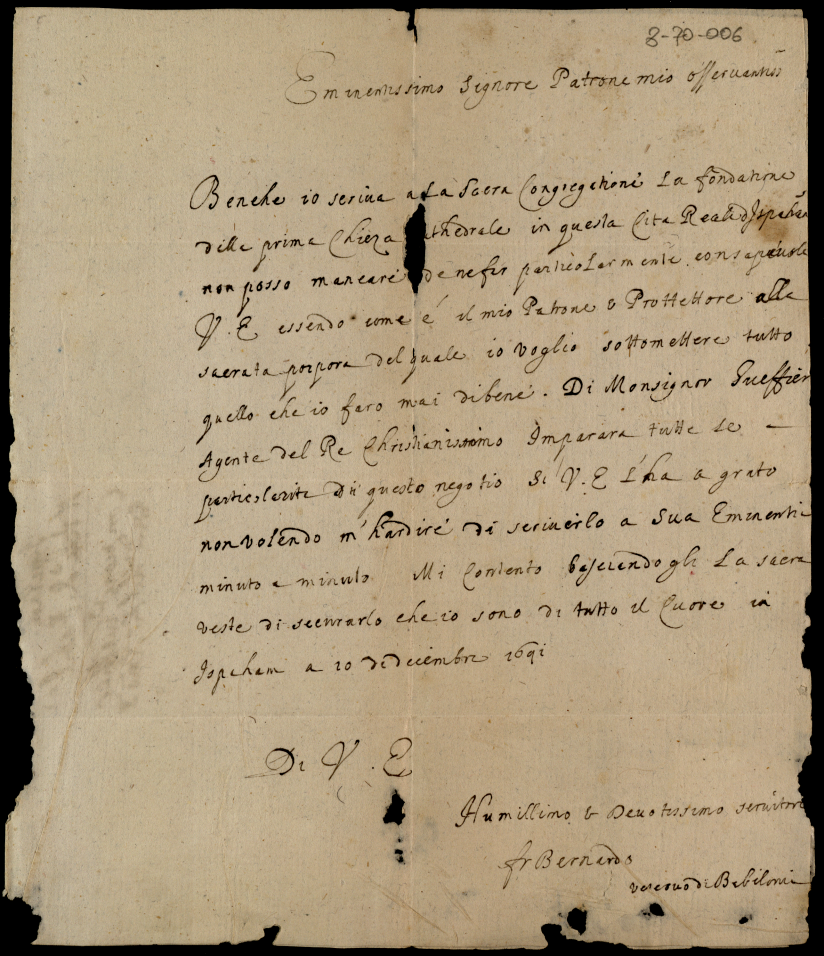 8-70-006
Eminentissimo Signore Patrone mio osservantiss
Benche io scriva a La Sacra Congregatione La fondatione
della prima Chieza athedrale in questa Cita Reale d'Ispahan
non posso mancare de ne far particolarmente consapevole
V. E essendo come é il mio Patrone & Prottettore alla
sacrata porpora del quale io voglio sottomettere tutto
quello che io faro mai di bene. Di Monsignor Gueffier
Agente del Re Christianissimo Imparara tutte Le —
particolarita di questo negotio Si V. E L'ha a grato
non volendo m'hardire di scriverlo a Sua Eminentia
minuto a minuto Mi Contento basciandogli La sacra
veste di securarlo che io sono di tutto il Cuore in
Ispaham a 10 di decembre
Di V. E
Humillimo & Devotissimo servitore
fr Bernardo
vescovo di Babilonia